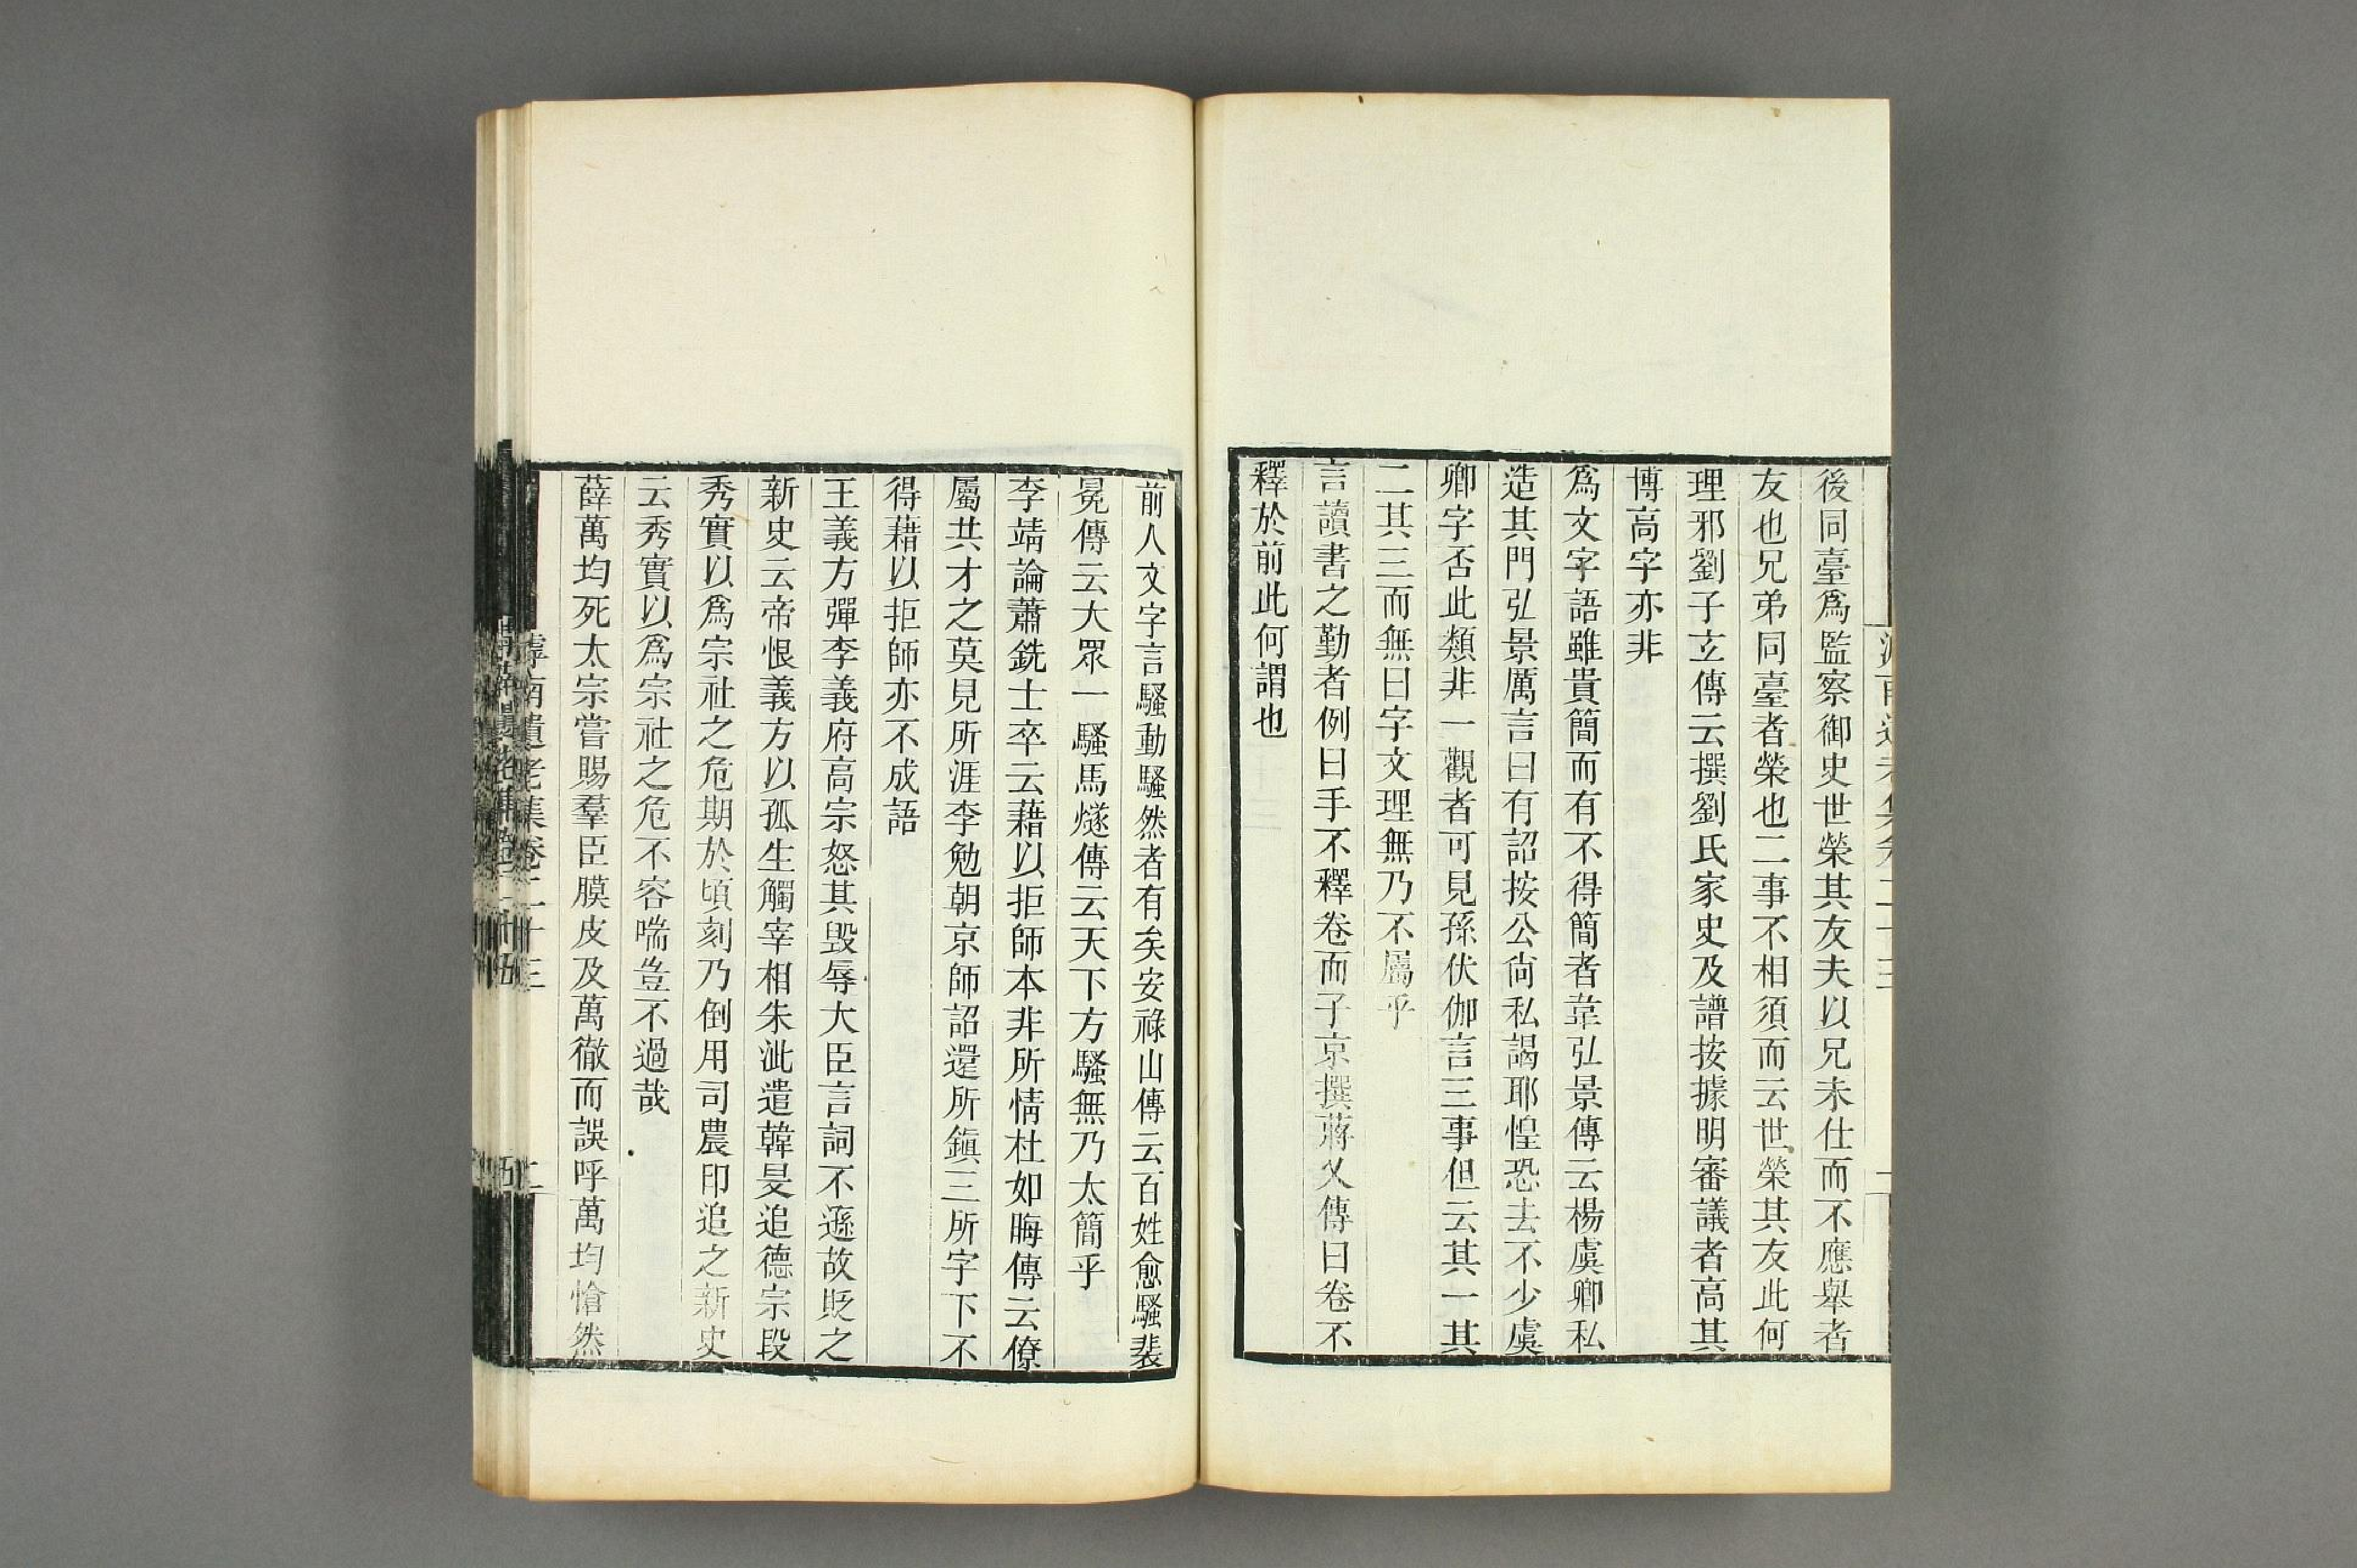 後同臺爲監察御史世榮其友夫以兄未仕而不應舉者
友也兄弟同臺者榮也二事不相須而云世榮其友此何
理邪劉子玄傳云撰劉氏家史及譜按據明審議者高其
博高字亦非
爲文字語雖貴簡而有不得簡者韋弘景傳云楊虞卿私
造其門弘景厲言曰有詔按公尙私謁耶惶恐去不少虞
卿字否此類非一觀者可見孫伏伽言三事但云其一其
二其三而無曰字文理無乃不屬乎
言讀書之勤者例曰手不釋卷而子京撰蔣乂傳曰卷不
釋於前此何謂也
前人文字言騷動騷然者有矣安祿山傳云百姓愈騷裴
冕傳云大眾一騷馬燧傳云天下方騷無乃太簡乎
李靖論蕭銑士卒云藉以拒師本非所情杜如晦傳云僚
屬共才之莫見所涯李勉朝京師詔還所鎭三所字下不
得藉以拒師亦不成語
王義方彈李義府高宗怒其毀辱大臣言詞不遜故貶之
新史云帝恨義方以孤生觸宰相朱泚遣韓旻追德宗段
秀實以爲宗社之危期於頃刻乃倒用司農印追之新史
云秀實以爲宗社之危不容喘豈不過哉
薛萬均死太宗嘗賜羣臣膜皮及萬徹而誤呼萬均愴然
滹南遺老集卷二十三
二